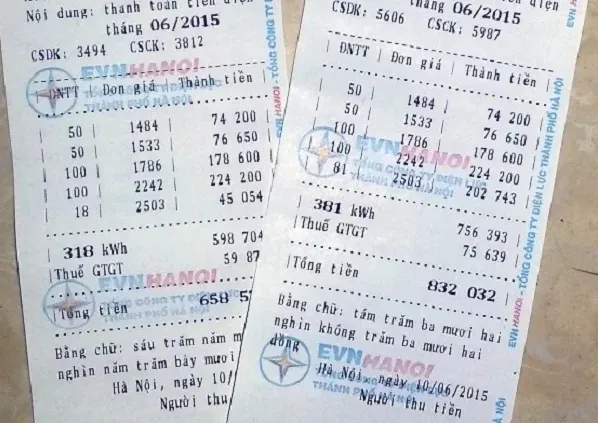 Nội dung: thanh toán tiền điện
tháng 06/2015
CSDK: 3494 CSCK: 3812
EVNHANOI
ĐNTT | Đơn giá | Thành tiền
THÀNH PHỐ HÀ NỘI
50 | 1484 | 74 200
50 | 1533 | 76 650
100 | 1786 | 178 600
100 | 2242 | 224 200
18 | 2503 | 45 054
318 kWh 598 704
Thuế GTGT 59 87
EVNHANOI
TỔNG CÔNG TY ĐIỆN LỰC
Tổng tiền 658 5
Bằng chữ: sáu trăm năm m
nghìn năm trăm bảy mươi
Hà Nội, ngày 10/
Người thu
EVNHANOI - TỔNG CÔNG TY
tháng 06/2015
CSDK: 5606 CSCK: 5987
| ĐNTT | Đơn giá | Thành tiền |
50 | 1484 | 74 200
50 | 1533 | 76 650
100 | 1786 | 178 600
100 | 2242 | 224 200
81 | 2503 | 202 743
EVNHANOI
TỔNG CÔNG TY ĐIỆN LỰC
THÀNH PHỐ HÀ NỘI
381 kWh 756 393
Thuế GTGT 75 639
Tổng tiền 832 032
Bằng chữ: tám trăm ba mươi hai
nghìn không trăm ba mươi hai
đồng
EVNHANOI
Hà Nội, ngày 10/06/2015
THÀNH PHỐ HÀ NỘI
Người thu tiền
EVNHANOI - TỔNG CÔNG TY ĐIỆN LỰC THÀNH PHỐ HÀ NỘI